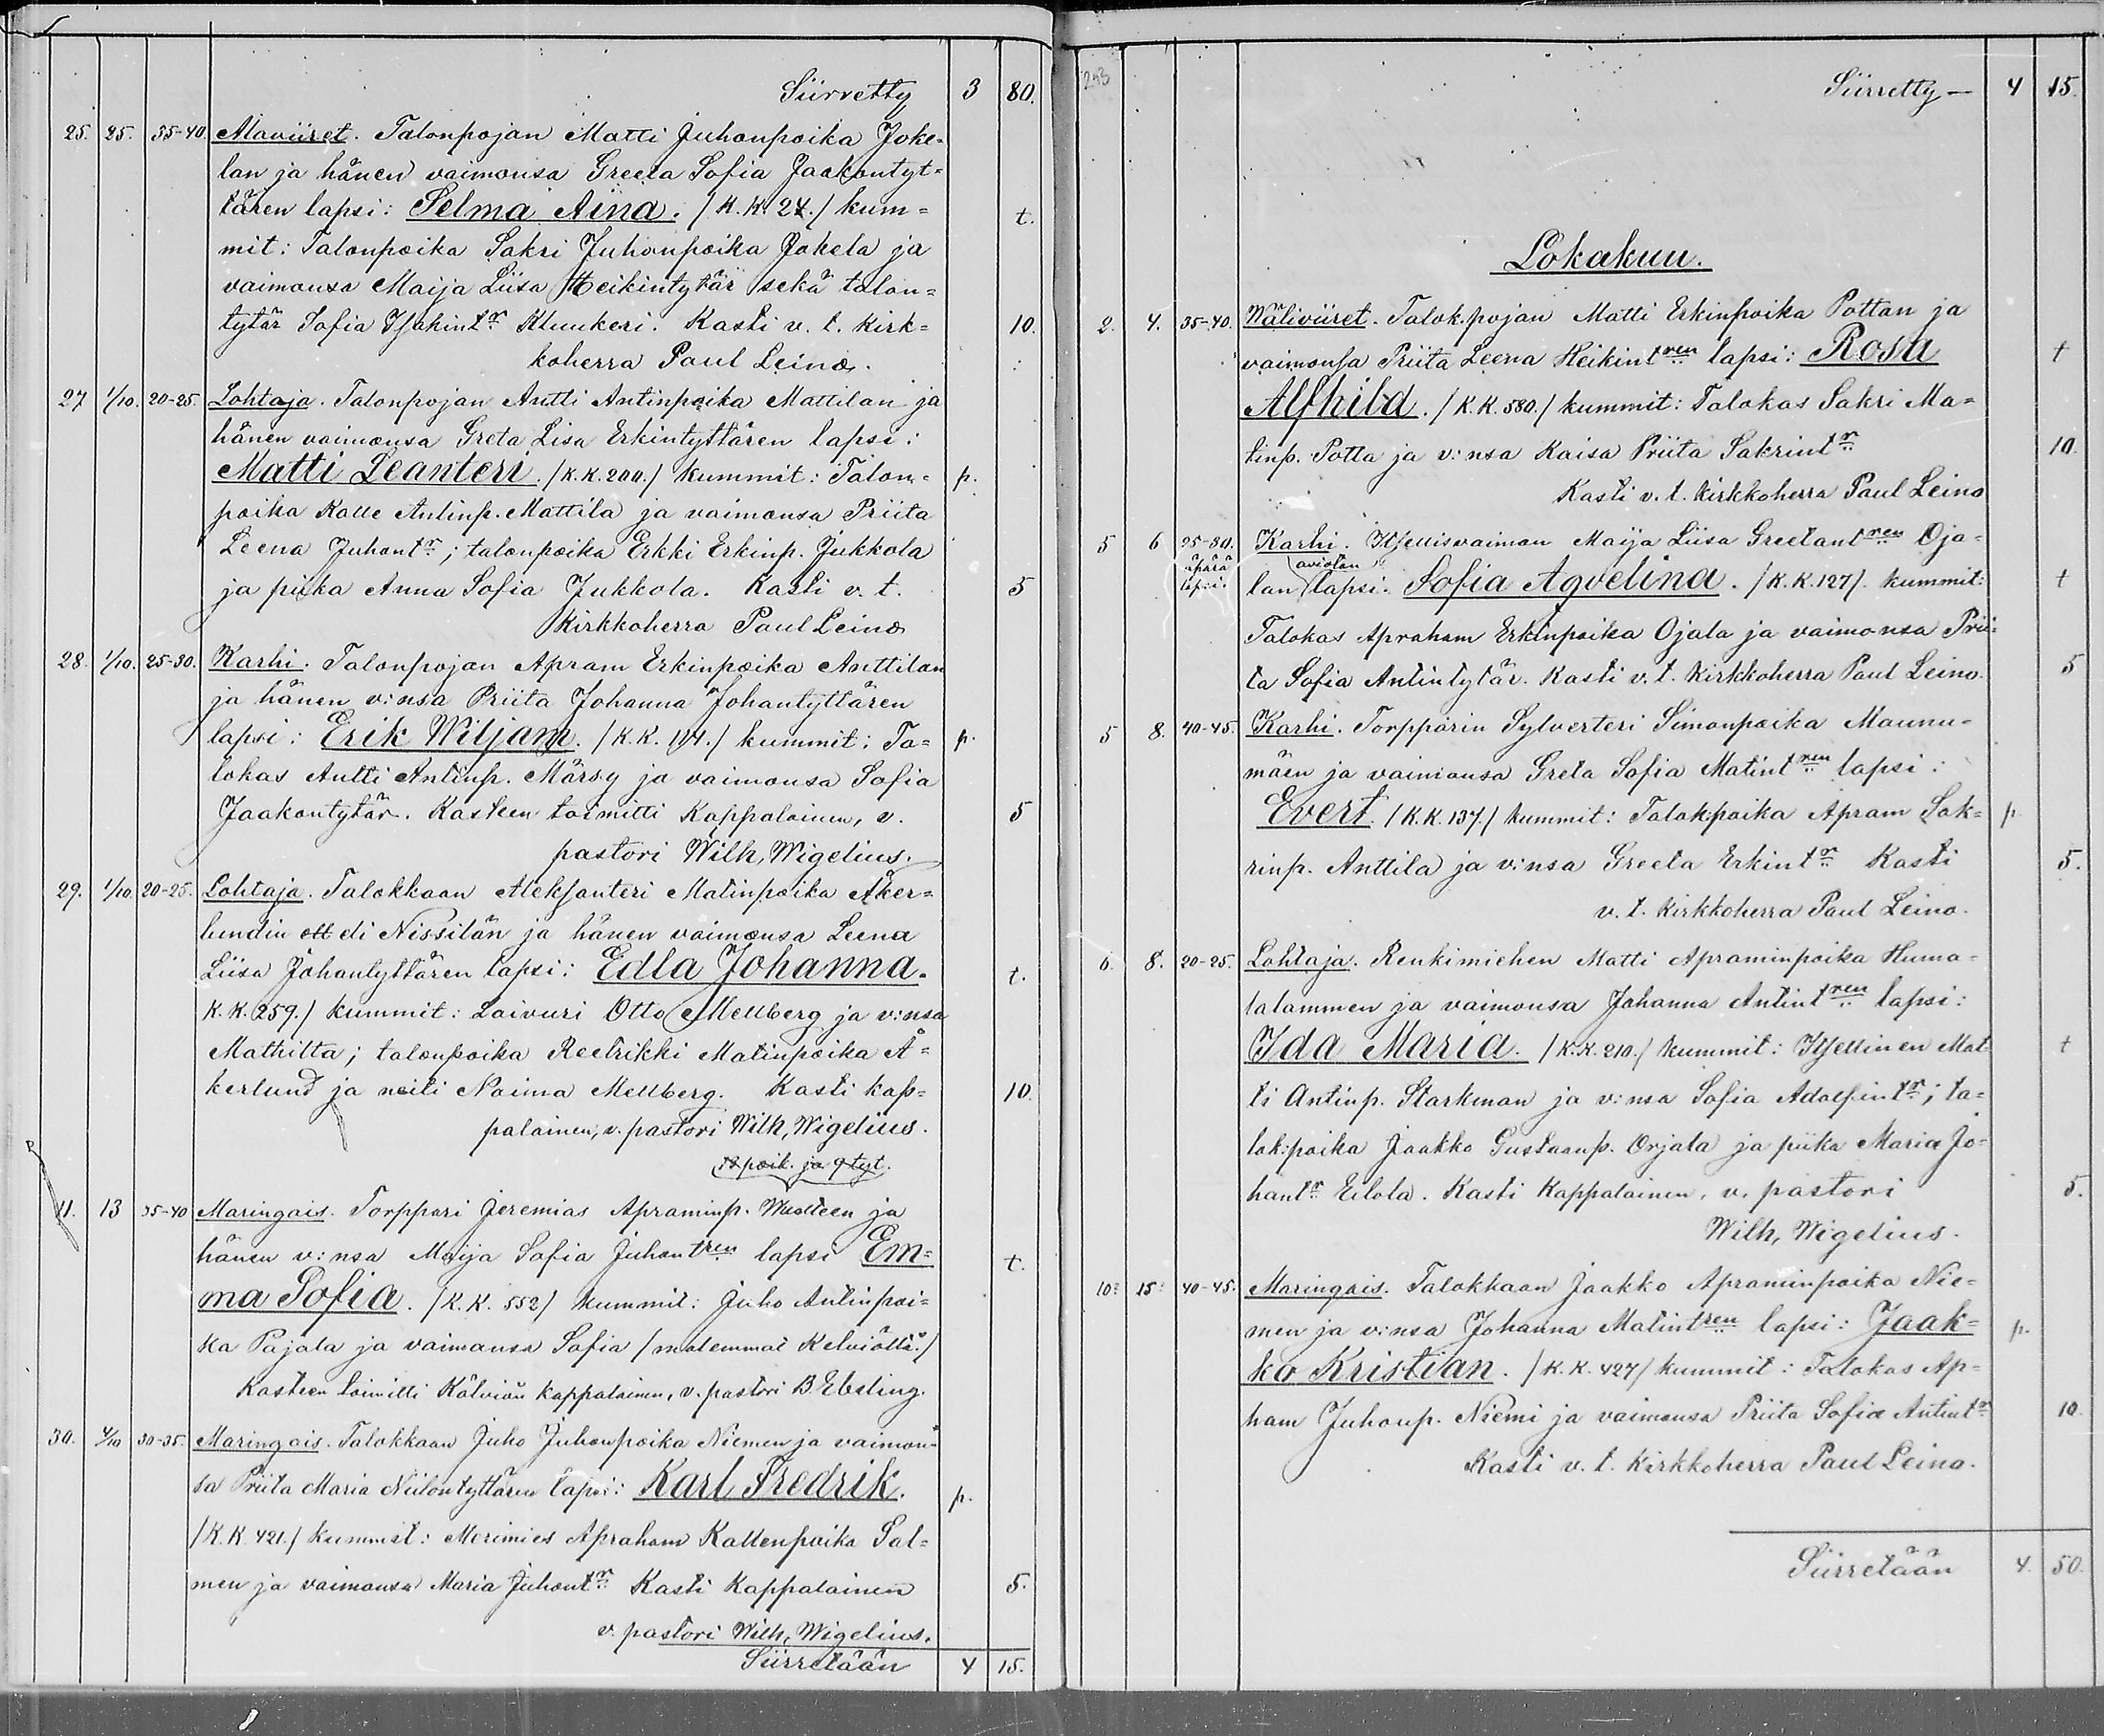 Siirretty 3 80.
25. 25. 35-40. Alaviiret. Talonpojan Matti Juhonpoika Joke=
lan ja hänen vaimonsa Greeta Sofia Jaakontyt=
tären lapsi: Selma Aina. /K.K. 24./ kum= t.
mit: Talonpoika Sakri Juhonpoika Jokela ja
vaimonsa Maija Liisa Heikintytär sekä talon=
tytär Sofia Isakintr Kluukeri. Kasti v. t. Kirk= 10.
koherra Paul Leino.
27 1/10. 20-25. Lohtaja. Talonpojan Antti Antinpoika Mattilan ja
hänen vaimonsa Greta Lisa Erkintyttären lapsi:
Matti Leanteri. /K.K. 200./ kummit: Talon= p.
poika Kalle Antinp. Mattila ja vaimonsa Priita
Leena Juhontr; talonpoika Erkki Erkinp. Jukkola
ja piika Anna Sofia Jukkola. Kasti v. t. 5
Kirkkoherra Paul Leino
28. 1/10. 25-30. Karhi. Talonpojan Apram Erkinpoika Anttilan
ja hänen v:nsa Priita Johanna Johantyttären
lapsi: Erik Wiljam. /K.K. 114./ kummit: Ta= p.
lokas Antti Antinp. Märsy ja vaimonsa Sofia
Jaakontytär. Kasteen toimitti Kappalainen, v. 5
pastori Wilh, Wigelius.
29. 1/10 20-25. Lohtaja. Talokkaan Aleksanteri Matinpoika Åker=
lundin ett di Nissilän ja hänen vaimonsa Leena
Liisa Johantyttären lapsi: Edla Johanna. t.
K.K. 259./ kummit: Laivuri Otto Mellberg ja v:nsa
Mathilta; talonpoika Reetrikki Matinpoika Å=
kerlund ja neiti Naima Mellberg. Kasti kap= 10.
palainen, v. pastori Wilh, Wigelius.
poik. ja 9 tyt.
11. 13 35-40 Maringais. Torppari Jeremias Apraminp. ja
hänen v:nsa Maija Sofia Juhontren lapsi Em= t.
ma Sofia. /K.K. 552/ kummit: Juho Antinpoi=
ka Pajala ja vaimonsa Sofia /molemmat Kelviältä./
Kasteen toimitti Kälviän kappalainen, v. pastori B. Ebeling.
30. 4/10 30-35. Maringais. Talokkaan Juho Juhonpoika Niemen ja vaimon=
sa Priita Maria Niilontyttären lapsi: Karl Fredrik. p.
/K.K. 421./ kummit: Merimies Apraham Kallenpoika Sal=
men ja vaimonsa Maria Juhontr Kasti Kappalainen 5.
v. pastori Wilh, Wigelius.
Siirretään 4 15.
243
Siirretty — 4 15.
Lokakuu.
2. 4. 35-40. Wäliviiret. Talok.pojan Matti Erkinpoika Pottan ja
vaimonsa Priita Leena Heikintren lapsi: Rosa t
Alfhild. /K.K. 580./ kummit: Talokas Sakri Ma=
tinp. Potta ja v:nsa Kaisa Priita Sakrintr 10.
Kasti v. t. kirkkoherra Paul Leino
5 6 25-30. Karhi. Itsellisvaimon Maija Liisa Greetantren Oja=
äpärä lapsi. lan aviotan lapsi: Sofia Aqvelina. /K.K. 127/. kummit: t
Talokas Apraham Erkinpoika Ojala ja vaimonsa Prii=
ta Sofia Antintytär. Kasti v. t. Kirkkoherra Paul Leino. 5
5 8. 40-45. Karhi. Torpparin Sylverteri Simonpoika Maunu=
mäen ja vaimonsa Greta Sofia Matintren lapsi:
Evert. /K.K. 137./ kummit: Talokpoika Apram Sak= p.
rinp. Anttila ja v:nsa Greeta Erkintr Kasti 5.
v. t. Kirkkoherra Paul Leino.
6. 8. 20-25. Lohtaja. Renkimiehen Matti Apraminpoika Huma=
lalammen ja vaimonsa Johanna Antintren lapsi:
Ida Maria. /K.K. 210./ kummit: Itsellinen Mat t
ti Antinp. Starkman ja v:nsa Sofia Adolfintr; ta=
lok:poika Jaakko Gustaanp. Orjala ja piika Maria Jo=
hantr Eilola. Kasti Kappalainen, v. pastori 5.
Wilh, Wigelius.
10: 15: 40-45. Maringais. Talokkaan Jaakko Apraminpoika Nie=
men ja v:nsa Johanna Matintren lapsi: Jaak= p.
ko Kristian. /K.K. 427/ kummit: Talokas Ap=
ham Juhonp. Niemi ja vaimonsa Priita Sofia Antintr 10.
Kasti v. t. Kirkkoherra Paul Leino.
Siirretään 4. 50.